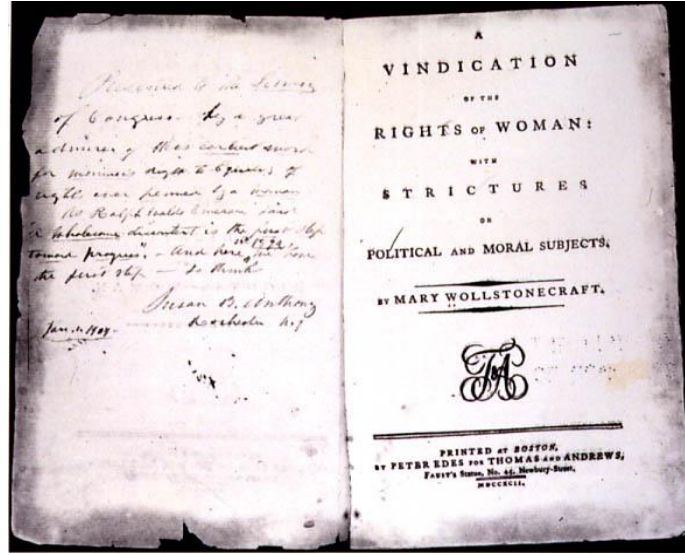 Presented to the Library
of Congress by a great
admirer of this earliest word
for woman's right to Equality of
rights ever penned by a woman
As Ralph Waldo Emerson said
"A wholesome discontent is the first step
toward progress". - And here, in 1792, we have
the first step - so think
Susan B. Anthony
Rochester N.Y
Jan. 1. 1904 -
A
VINDICATION
OF THE
RIGHTS OF WOMAN:
WITH
STRICTURES
ON
POLITICAL AND MORAL SUBJECTS.
BY MARY WOLLSTONECRAFT.
T&A
PRINTED AT BOSTON,
BY PETER EDES FOR THOMAS AND ANDREWS,
FAUST'S Statue, No. 45, Newbury-Street,
MDCCXCII.